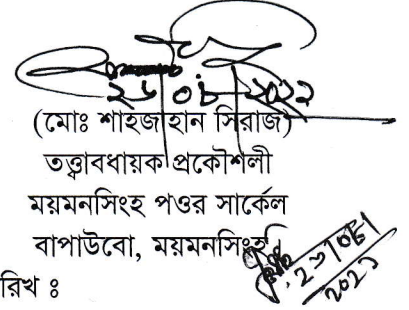 ২৬/০৮/২০২১
(মোঃ শাহজাহান সিরাজ)
তত্ত্বাবধায়ক প্রকৌশলী
ময়মনসিংহ পওর সার্কেল
বাপাউবো, ময়মনসিংহ
রিখ ঃ